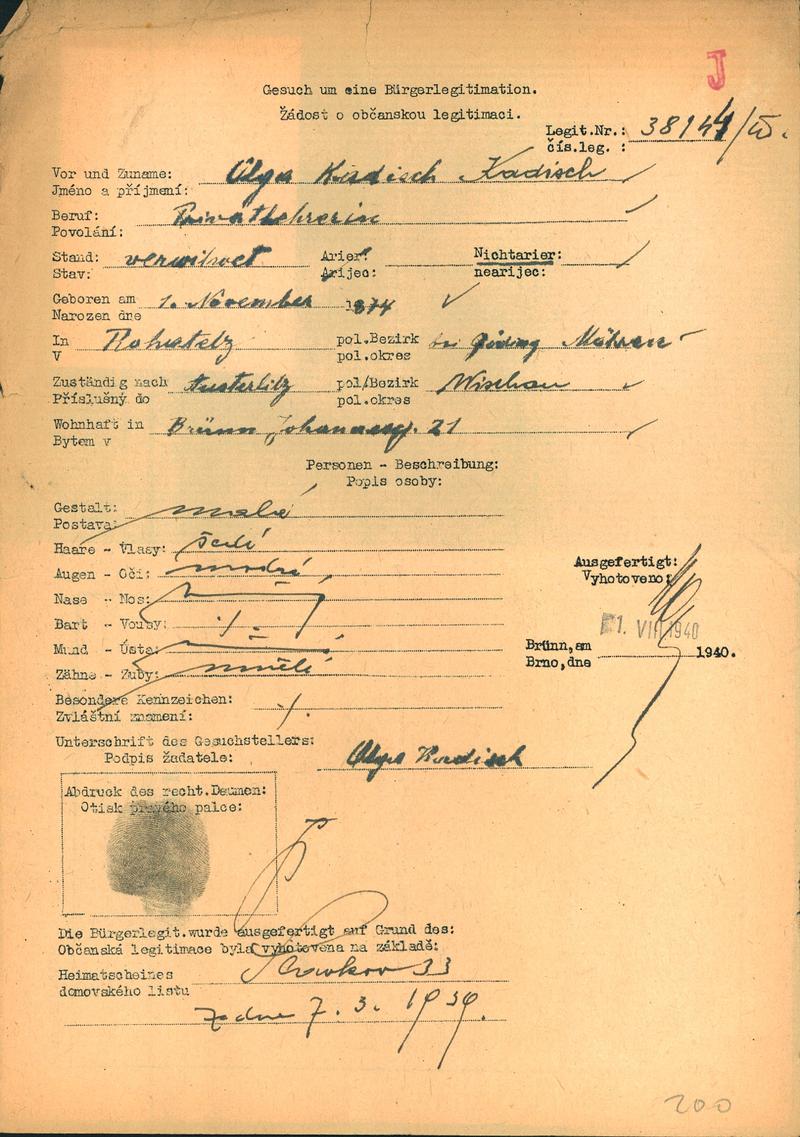 J
Gesuch um eine Bürgerlegitimation.
Žádost o občanskou legitimaci.
Legit.Nr.: 38144/
čís.leg. :
Vor und Zuname: Olga Kadisch Kadisch
Jméno a příjmení:
Beruf: Privatlehrerin
Povolání:
Stand: verwitwet Arier: Nichtarier:
Stav: Arijec: nearijec:
Geboren am 1. November 1874
Narozen dne
In Rohatetz pol.Bezirk bei Göding Mähren
V pol.okres
Zuständig nach Austerlitz pol/Bezirk Wischau
Příslušný do pol.okres
Wohnhaft in Brünn Johannesg. 21
Bytem v
Personen - Beschreibung:
Popis osoby:
Gestalt: malá
Postava:
Haare - Vlasy: šedé
Augen - Oči: modré
Nase - Nos:
Bart - Vousy: ./.
Mund - Ústa:
Zähne - Zuby: umělé
Besondere Kennzeichen: ./.
Zvláštní znamení:
Ausgefertigt:
Vyhotoveno:
1. VIII 1940
Brünn, am 1940.
Brno, dne
Unterschrift des Gesuchstellers: Olga Kadisch
Podpis žadatele:
Abdruck des recht.Daumen:
Otisk pravého palce:
Die Bürgerlegit.wurde ausgefertigt auf Grund des:
Občanská legitimace byla vyhotovena na základě:
Heimatscheines Slavkov 33
domovského listu
ze dne 7. 3. 1939.
200